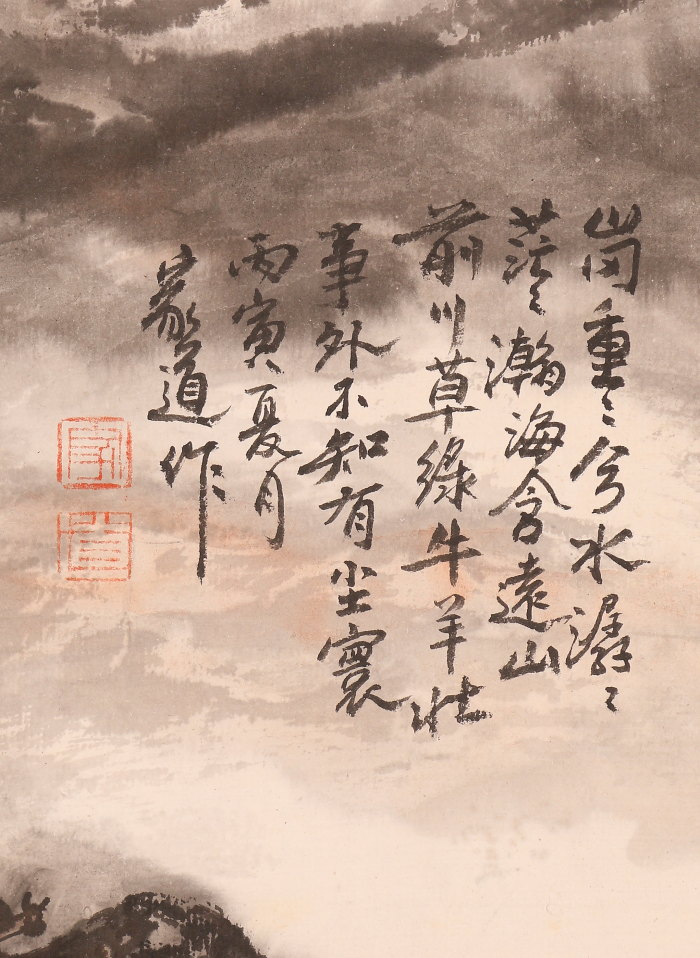 岗重〻兮水潺〻
茫〻瀚海含遠山
前川草綠牛羊壮
事外不知有尘寰
丙寅夏月
家道作